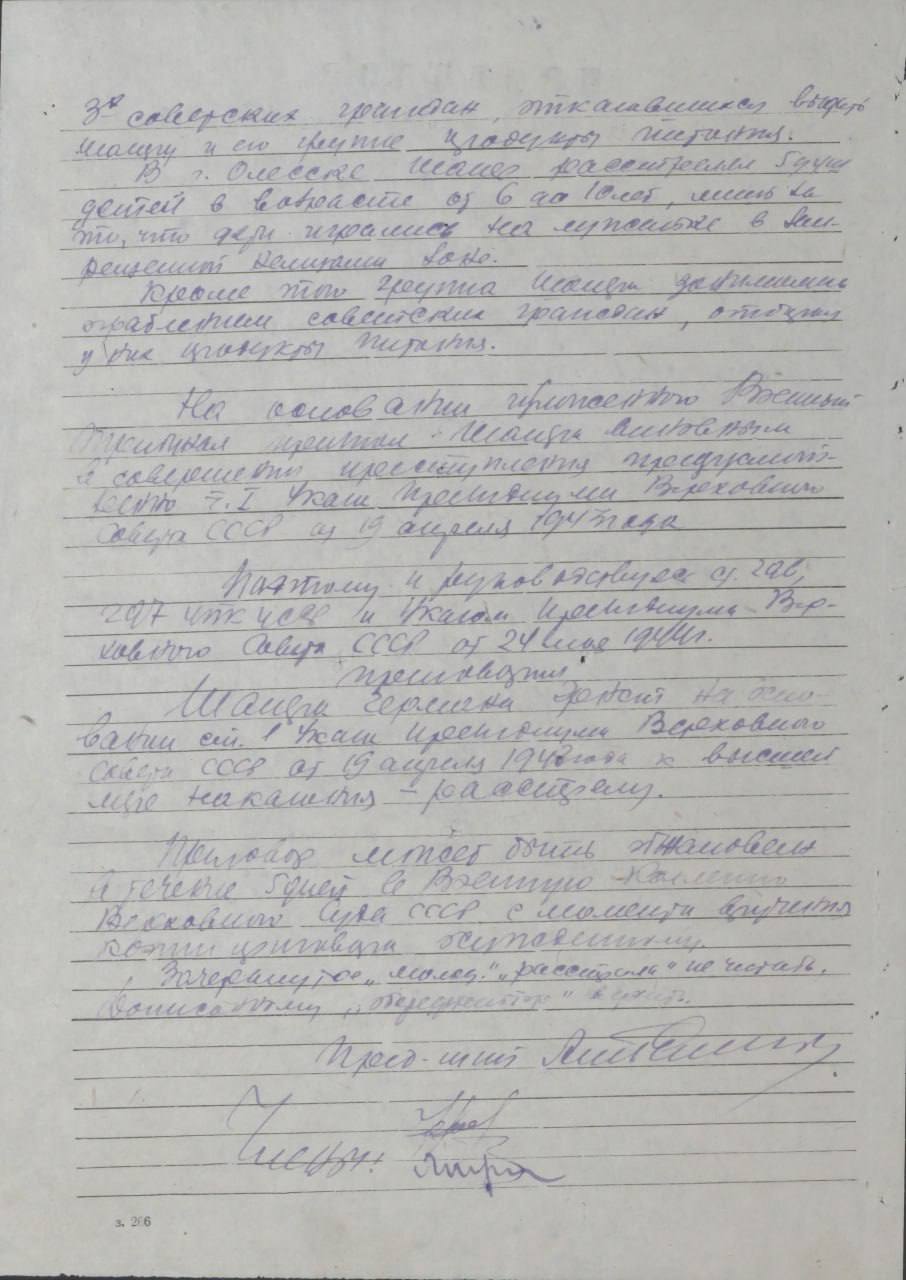 3х советских граждан, отказавшихся выдать
Шанцу и его группе продукты питания.
В г. Олесске Шанц расстрелял 5 душ
детей в возрасте от 6 до 10 лет, лишь за
то, что дети игрались на лужайке в зап-
рещенной немцами зоне.
Кроме того группа Шанца занималась
ограблением советских граждан, отбирая
у них продукты питания.
На основании изложенного Военный
Трибунал признал Шанца виновным
в совершении преступления предусмот-
ст. I Указа Президиума Верховного
Совета СССР от 19 апреля 1943 года
Поэтому и руководствуясь ст. 296,
297 УПК УССР и Указом Президиума Вер-
ховного Совета СССР от 24 мая 1944 г.
приговорил
Шанца Германа на осно-
вании ст. 1 Указа Президиума Верховного
Совета СССР от 19 апреля 1943 года к высшей
мере наказания – расстрелу.
Приговор может быть обжалован
в течение 5 дней в Военную Коллегию
Верховного Суда СССР с момента вручения
копии приговора осужденному.
Зачеркнутое „ " „расстрела" не читать.
Дописанному „ " верить.
Пред-щий
Члены:
з. 266